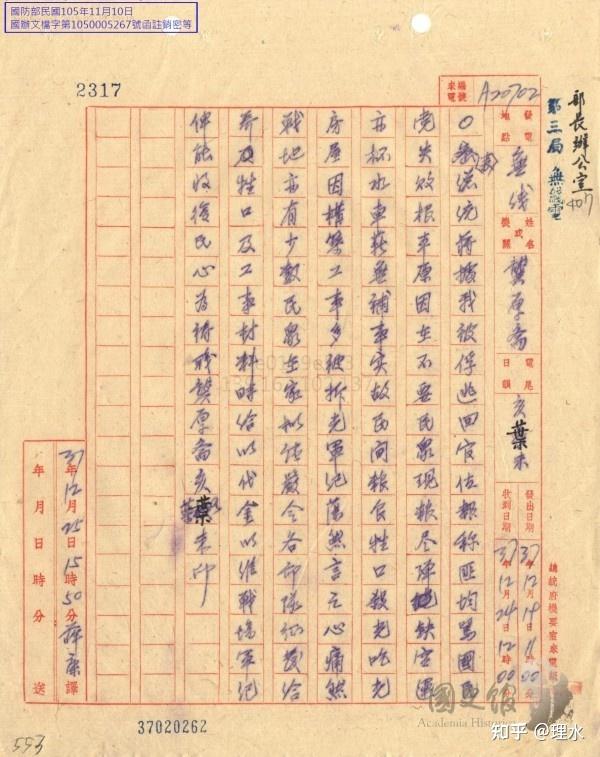 國防部民國105年11月10日
國辦文檔字第1050005267號函註銷密等
2317
來電編號 A20702
部長辦公室 407
第三局 無線電
發電地點 無线
姓名或機關 龔厚齋
電尾日韻 亥葉未
發出日期 37年12月14日11時00分
收到日期 37年12月24日12時00分
總統府機要室來電紙
總統蔣據我被俘逃回官佐報称匪均罵國民
党失敗根本原因在不要民衆現粮尽陣地缺空運
亦杯水車薪無補事实故民间粮食牲口殺光吃光
房屋因構築工事多被拆光軍紀蕩然言之心痛然
戰地亦有少數民衆在家拟請嚴令各部隊征發給
养及牲口及工事材料時给以代金以维戰場軍纪
俾能收復民心為祷職龔厚齋亥葉未印
37年12月25日15時50分 譯
年 月 日 時 分 送
37020262
553
國史館
Academia Historica
知乎 @理水